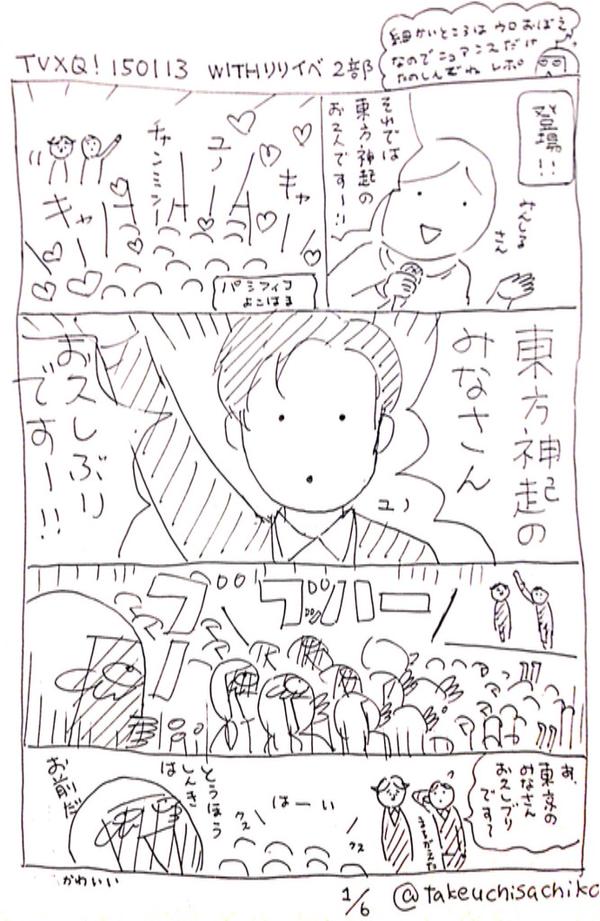 TVXQ! 150113 WITHリリイベ 2部
細かいところはウロおぼえ
なのでニュアンスだけ
たのしんでね レポ
登場!!
みんしる
さん
それでは
東方神起の
お2人です〜!!
キャ
ユノ
チャンミン
キャー
パシフィコ
よこはま
東方神起の
みなさん
ユノ
お久しぶり
です〜!!
ブッブハー
あ、
東京の
みなさん
お久しぶり
です〜
はーい
クス
クス
とうほう
しんき
は
お前だ
かわいい
1/6
@takeuchisachiko